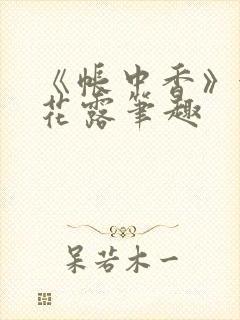 《帐中香》
花露笔趣
呆若木一